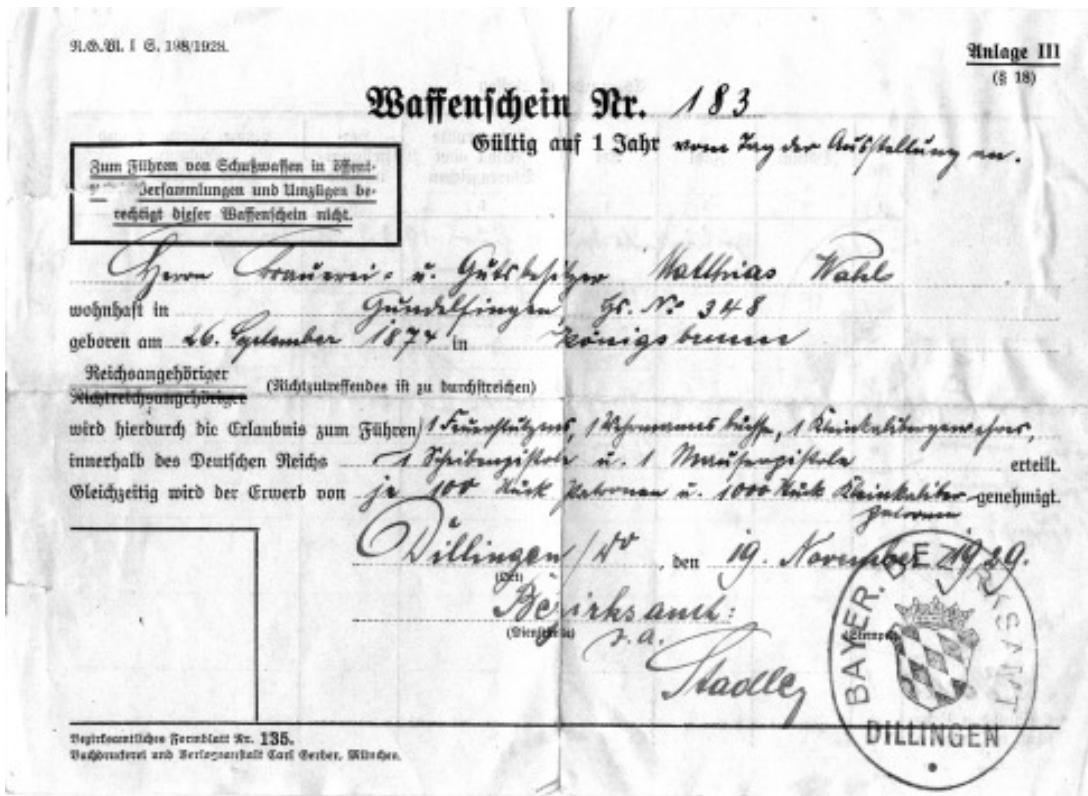 R.G.Bl. I S. 198/1928.
Anlage III
(§ 18)
Waffenschein Nr. 183
Gültig auf 1 Jahr vom Tag der Ausstellung an.
Zum Führen von Schußwaffen in öffent-
Versammlungen und Umzügen be-
rechtigt dieser Waffenschein nicht.
Herrn Brauerei- u. Gutsbesitzer Matthias
wohnhaft in Gundelfingen, Hs. No 348
geboren am 26. September 1874 in Königsbrunn
Reichsangehöriger
Nichtreichsangehöriger
(Nichtzutreffendes ist zu durchstreichen)
wird hierdurch die Erlaubnis zum Führen 1 1 Wehrmannsbüchse, 1 Kleinkalibergewehres,
innerhalb des Deutschen Reichs 1 Scheibenpistole u. 1 Mauserpistole erteilt.
Gleichzeitig wird der Erwerb von je 100 Stück Patronen u. 1000 Stück Kleinkaliber- genehmigt.
patronen
Dillingen / Do, den 19. November 1929.
(Ort)
Bezirksamt:
(Dienststelle)
(Stempel)
Stadler
BAYER. BEZIRKSAMT
DILLINGEN
Bezirksamtliches Formblatt Nr. 135.
Buchdruckerei und Verlagsanstalt Carl Gerber, München.